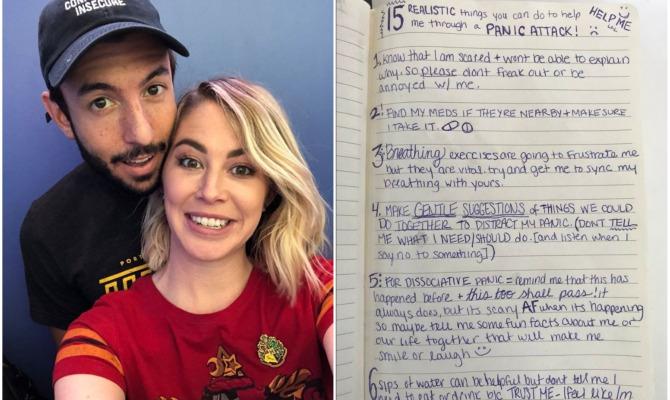 CON
INSECURE
POR
15 REALISTIC things you can do to help
me through a PANIC ATTACK!
HELP ME
1. know that I am scared + won't be able to explain
why, so please dont freak out or be
annoyed w/ me.
2. FIND MY MEDS IF THEYRE NEARBY + MAKE SURE
I TAKE IT.
3. Breathing exercises are going to frustrate me
but they are vital. try and get me to sync my
breathing with yours.
4. MAKE GENTLE SUGGESTIONS of THINGS WE COULD
DO TOGETHER TO DISTRACT MY PANIC. (DONT TELL
ME WHAT I NEED/SHOULD do. [and listen when I
say no to something])
5. FOR DISSOCIATIVE PANIC = remind me that this has
happened before + this too shall pass! it
always does, but its scary AF when its happening
so maybe tell me some fun facts about me or
our life together that will make me
smile or laugh
6 sips of water can be helpful but dont tell me I
need to eat or drink b/c TRUST ME - I feel like I'm